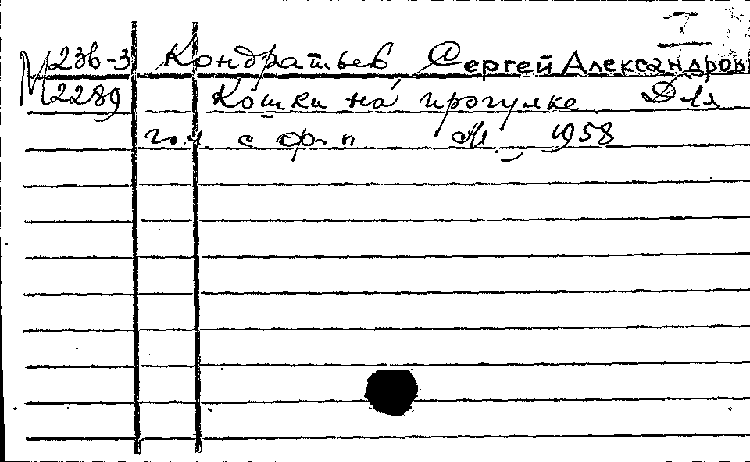 I
М 23в-3 Кондратьев, Сергей Александров
2289 Кошки на прогулке Для
гол. с ф-п М., 1958